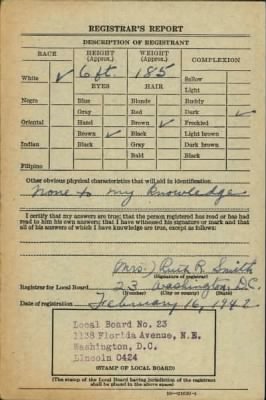 REGISTRAR'S REPORT
DESCRIPTION OF REGISTRANT
RACE HEIGHT (Approx.) WEIGHT (Approx.) COMPLEXION
White ✓ 6 ft. 185 Sallow
EYES HAIR Light
Negro Blue Blonde Ruddy
Gray Red Dark ✓
Oriental Hazel Brown ✓ Freckled
Brown ✓ Black Light brown
Indian Black Gray Dark brown
Bald Black
Filipino
Other obvious physical characteristics that will aid in identification.
None to my knowledge
I certify that my answers are true; that the person registered has read or has had
read to him his own answers; that I have witnessed his signature or mark and that
all of his answers of which I have knowledge are true, except as follows:
(Mrs.) Ruth R. Smith
(Signature of registrar)
Registrar for Local Board 23 Washington, D.C.
(Number) (City or county)
Date of registration February 16, 1942
Local Board No. 23
1138 Florida Avenue, N.E.
Washington, D.C.
Lincoln 0424
(STAMP OF LOCAL BOARD)
(The stamp of the Local Board having jurisdiction of the registrant
shall be placed in the above space)